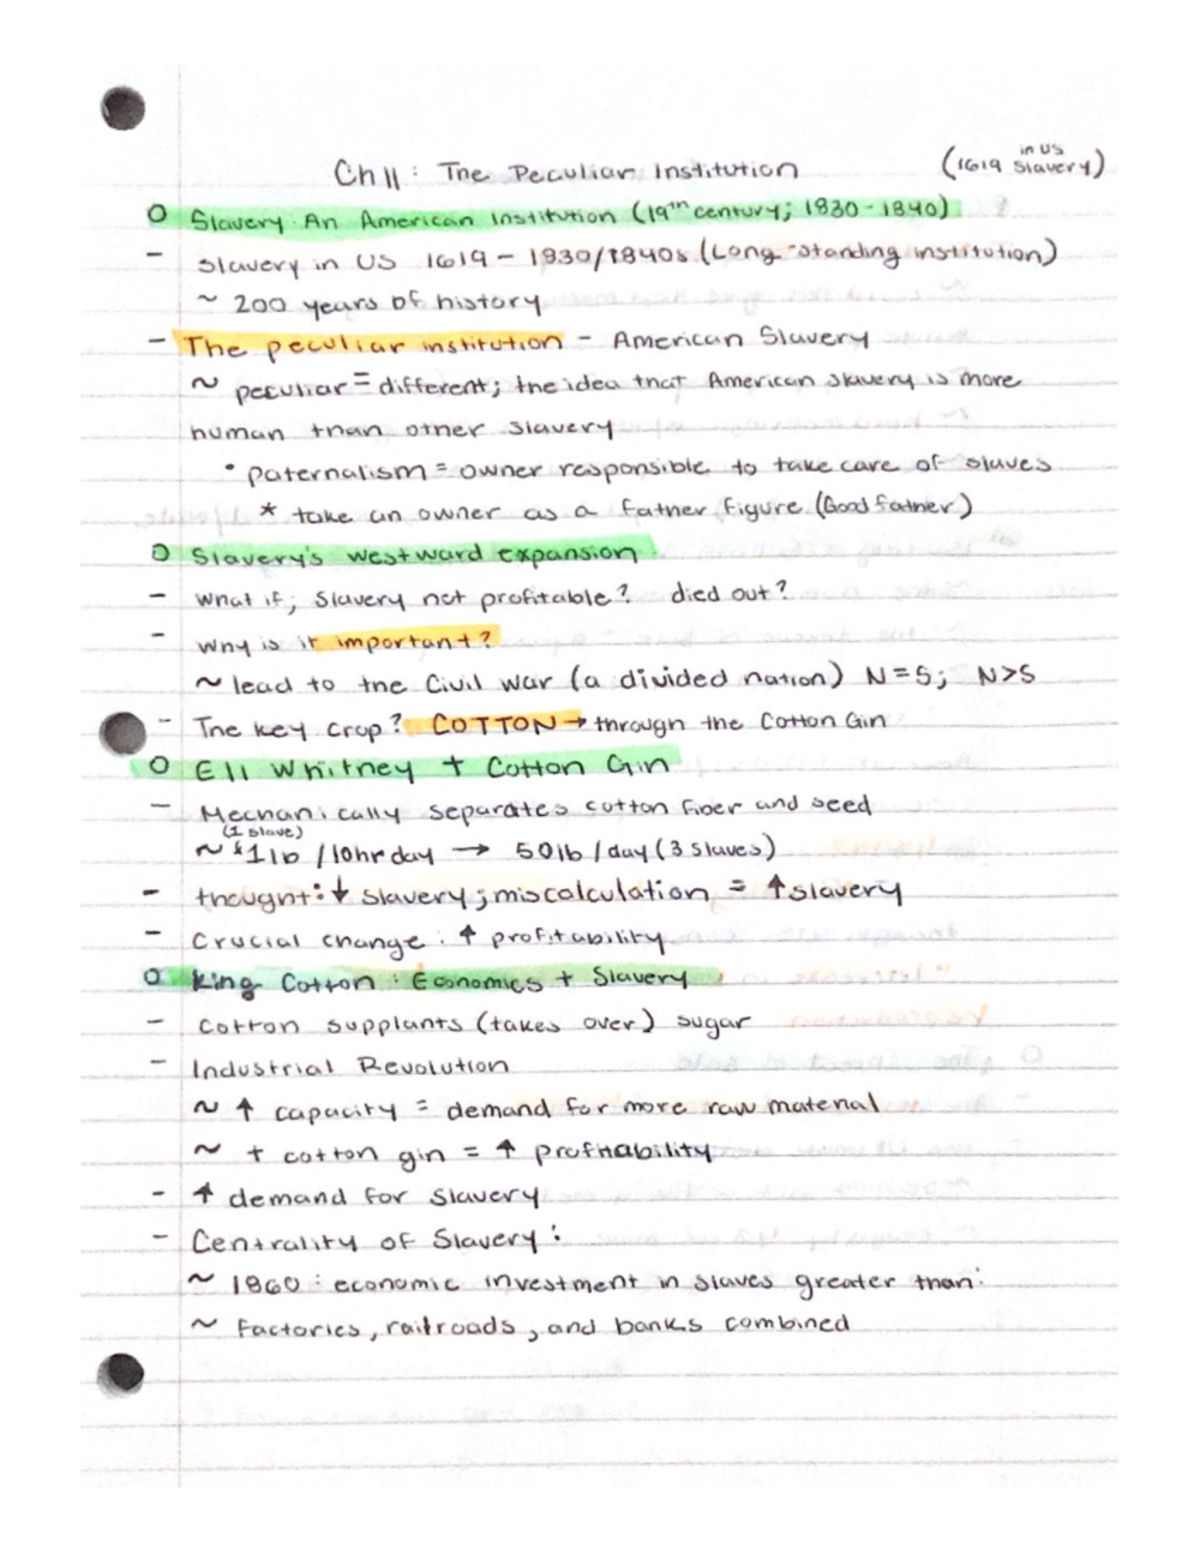 Ch 11: The Peculiar Institution (1619 in US Slavery)
O Slavery: An American Institution (19th century; 1830-1840)
- slavery in US 1619 - 1830/1840s (Long-standing institution)
~ 200 years of history
- The peculiar institution - American Slavery
~ peculiar = different; the idea that American slavery is more
human than other slavery
• paternalism = owner responsible to take care of slaves
* take an owner as a father figure (Good father)
O Slavery's westward expansion
- what if; slavery not profitable? died out?
- why is it important?
~ lead to the Civil war (a divided nation) N=S; N>S
- The key crop? COTTON → through the Cotton Gin
O Eli Whitney + Cotton Gin
- Mechanically separates cotton fiber and seed
(1 slave)
~ 1lb / 10hr day → 50lb / day (3 slaves)
- thought: ↓ slavery; miscalculation = ↑ slavery
- Crucial change: ↑ profitability
O King Cotton: Economics + Slavery
- Cotton supplants (takes over) sugar
- Industrial Revolution
~ ↑ capacity = demand for more raw material
~ + cotton gin = ↑ profitability
- ↑ demand for slavery
- Centrality of Slavery:
~ 1860: economic investment in slaves greater than:
~ factories, railroads, and banks combined